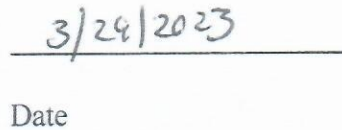 3/29/2023
Date